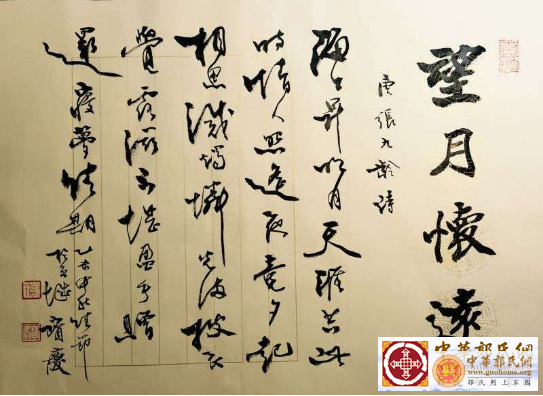 望月懷遠
唐張九齡詩
海上升明月天涯共此
時情人怨遙夜竟夕起
相思滅燭憐光滿披衣
覺露滋不堪盈手贈
還寢夢佳期
乙未中秋佳節
寶慶
中華郭氏網
中華郭氏網
www.guohome.org